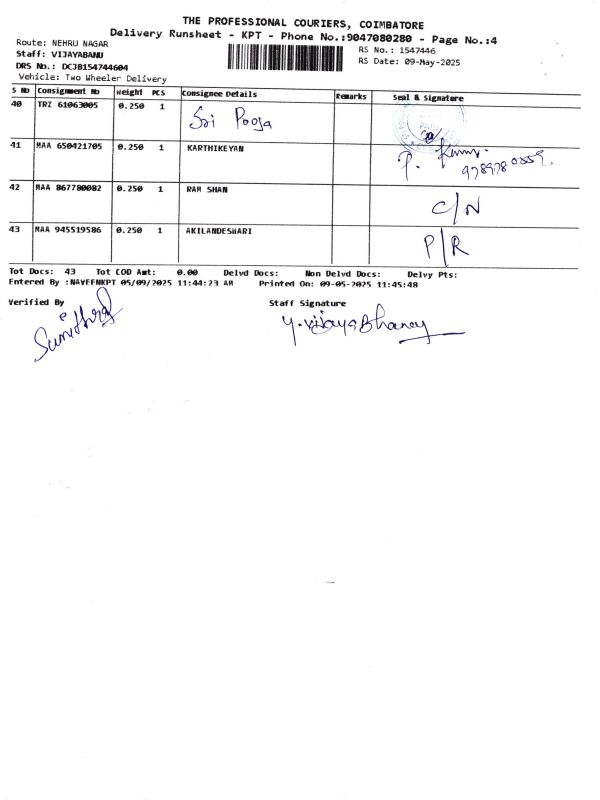 THE PROFESSIONAL COURIERS, COIMBATORE
Delivery Runsheet - KPT - Phone No.:9047080280 - Page No.:4
Route: NEHRU NAGAR
RS No.: 1547446
Staff: VIJAYABANU
RS Date: 09-May-2025
DRS No.: DCJB154744604
Vehicle: Two Wheeler Delivery
S No Consignment No Weight PCS Consignee Details Remarks Seal & Signature
40 TRZ 61063005 0.250 1 Sri Pooja
41 MAA 650421705 0.250 1 KARTHIKEYAN P. Kumar.
42 MAA 867780082 0.250 1 RAM SHAN C/N
43 MAA 945519586 0.250 1 AKILANDESWARI P/R
Tot Docs: 43 Tot COD Amt: 0.00 Delvd Docs: Non Delvd Docs: Delvy Pts:
Entered By :NAVEENKPT 05/09/2025 11:44:23 AM Printed On: 09-05-2025 11:45:48
Verified By Staff Signature
Y. Vijaya Bhaney